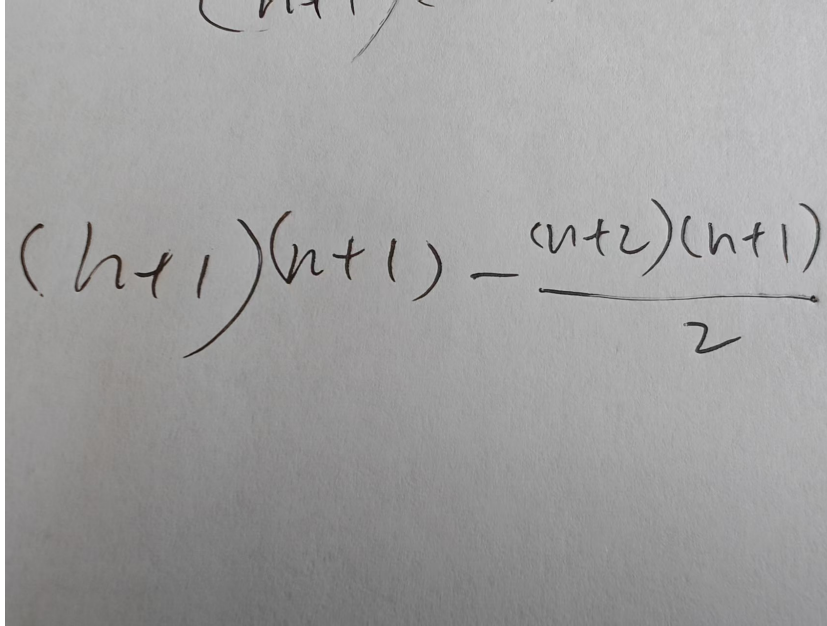 (n+1)
(n+1)(n+1) - \frac{(n+2)(n+1)}{2}